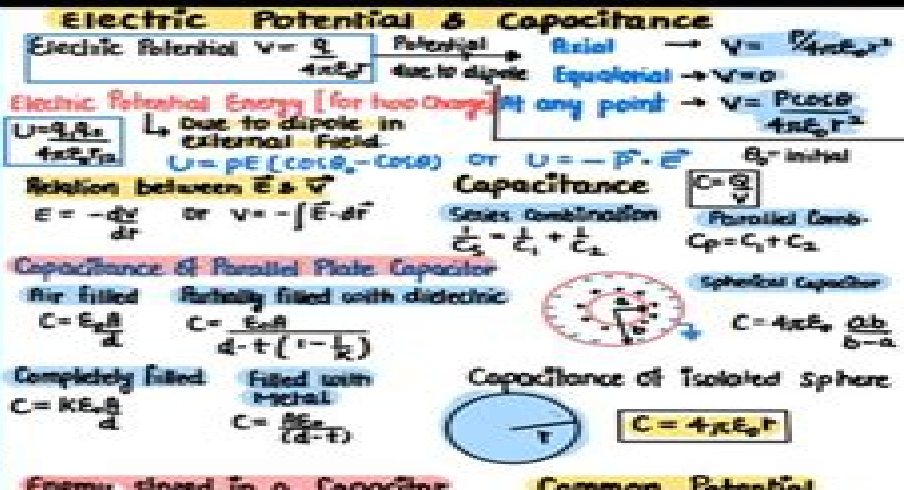 Electric Potential & Capacitance
Electric Potential V = q/4πε₀r
Potential due to dipole
Axial → V = P/4πε₀r²
Equatorial → V=0
At any point → V = Pcosθ/4πε₀r²
Electric Potential Energy [for two charge]
U = q₁q₂/4πε₀r₁₂
↳ Due to dipole in
external Field
U = pE(cosθ₀ - cosθ) or U = -p⃗·E⃗
θ₀ - initial
Relation between E⃗ & V⃗
E = -dv/dr or V = -∫E⃗·dr⃗
Capacitance C = Q/V
Series Combination
1/Cₛ = 1/C₁ + 1/C₂
Parallel Comb-
Cp = C₁ + C₂
Capacitance of Parallel Plate Capacitor
Air filled
C = ε₀A/d
Partially filled with dielectric
C = ε₀A/d-t(1-1/k)
Completely filled
C = kε₀A/d
Filled with
Metal
C = Aε₀/(d-t)
Spherical Capacitor
a
b
C = 4πε₀ ab/b-a
Capacitance of Isolated Sphere
r
C = 4πε₀r
Energy stored in a Capacitor
Common Potential